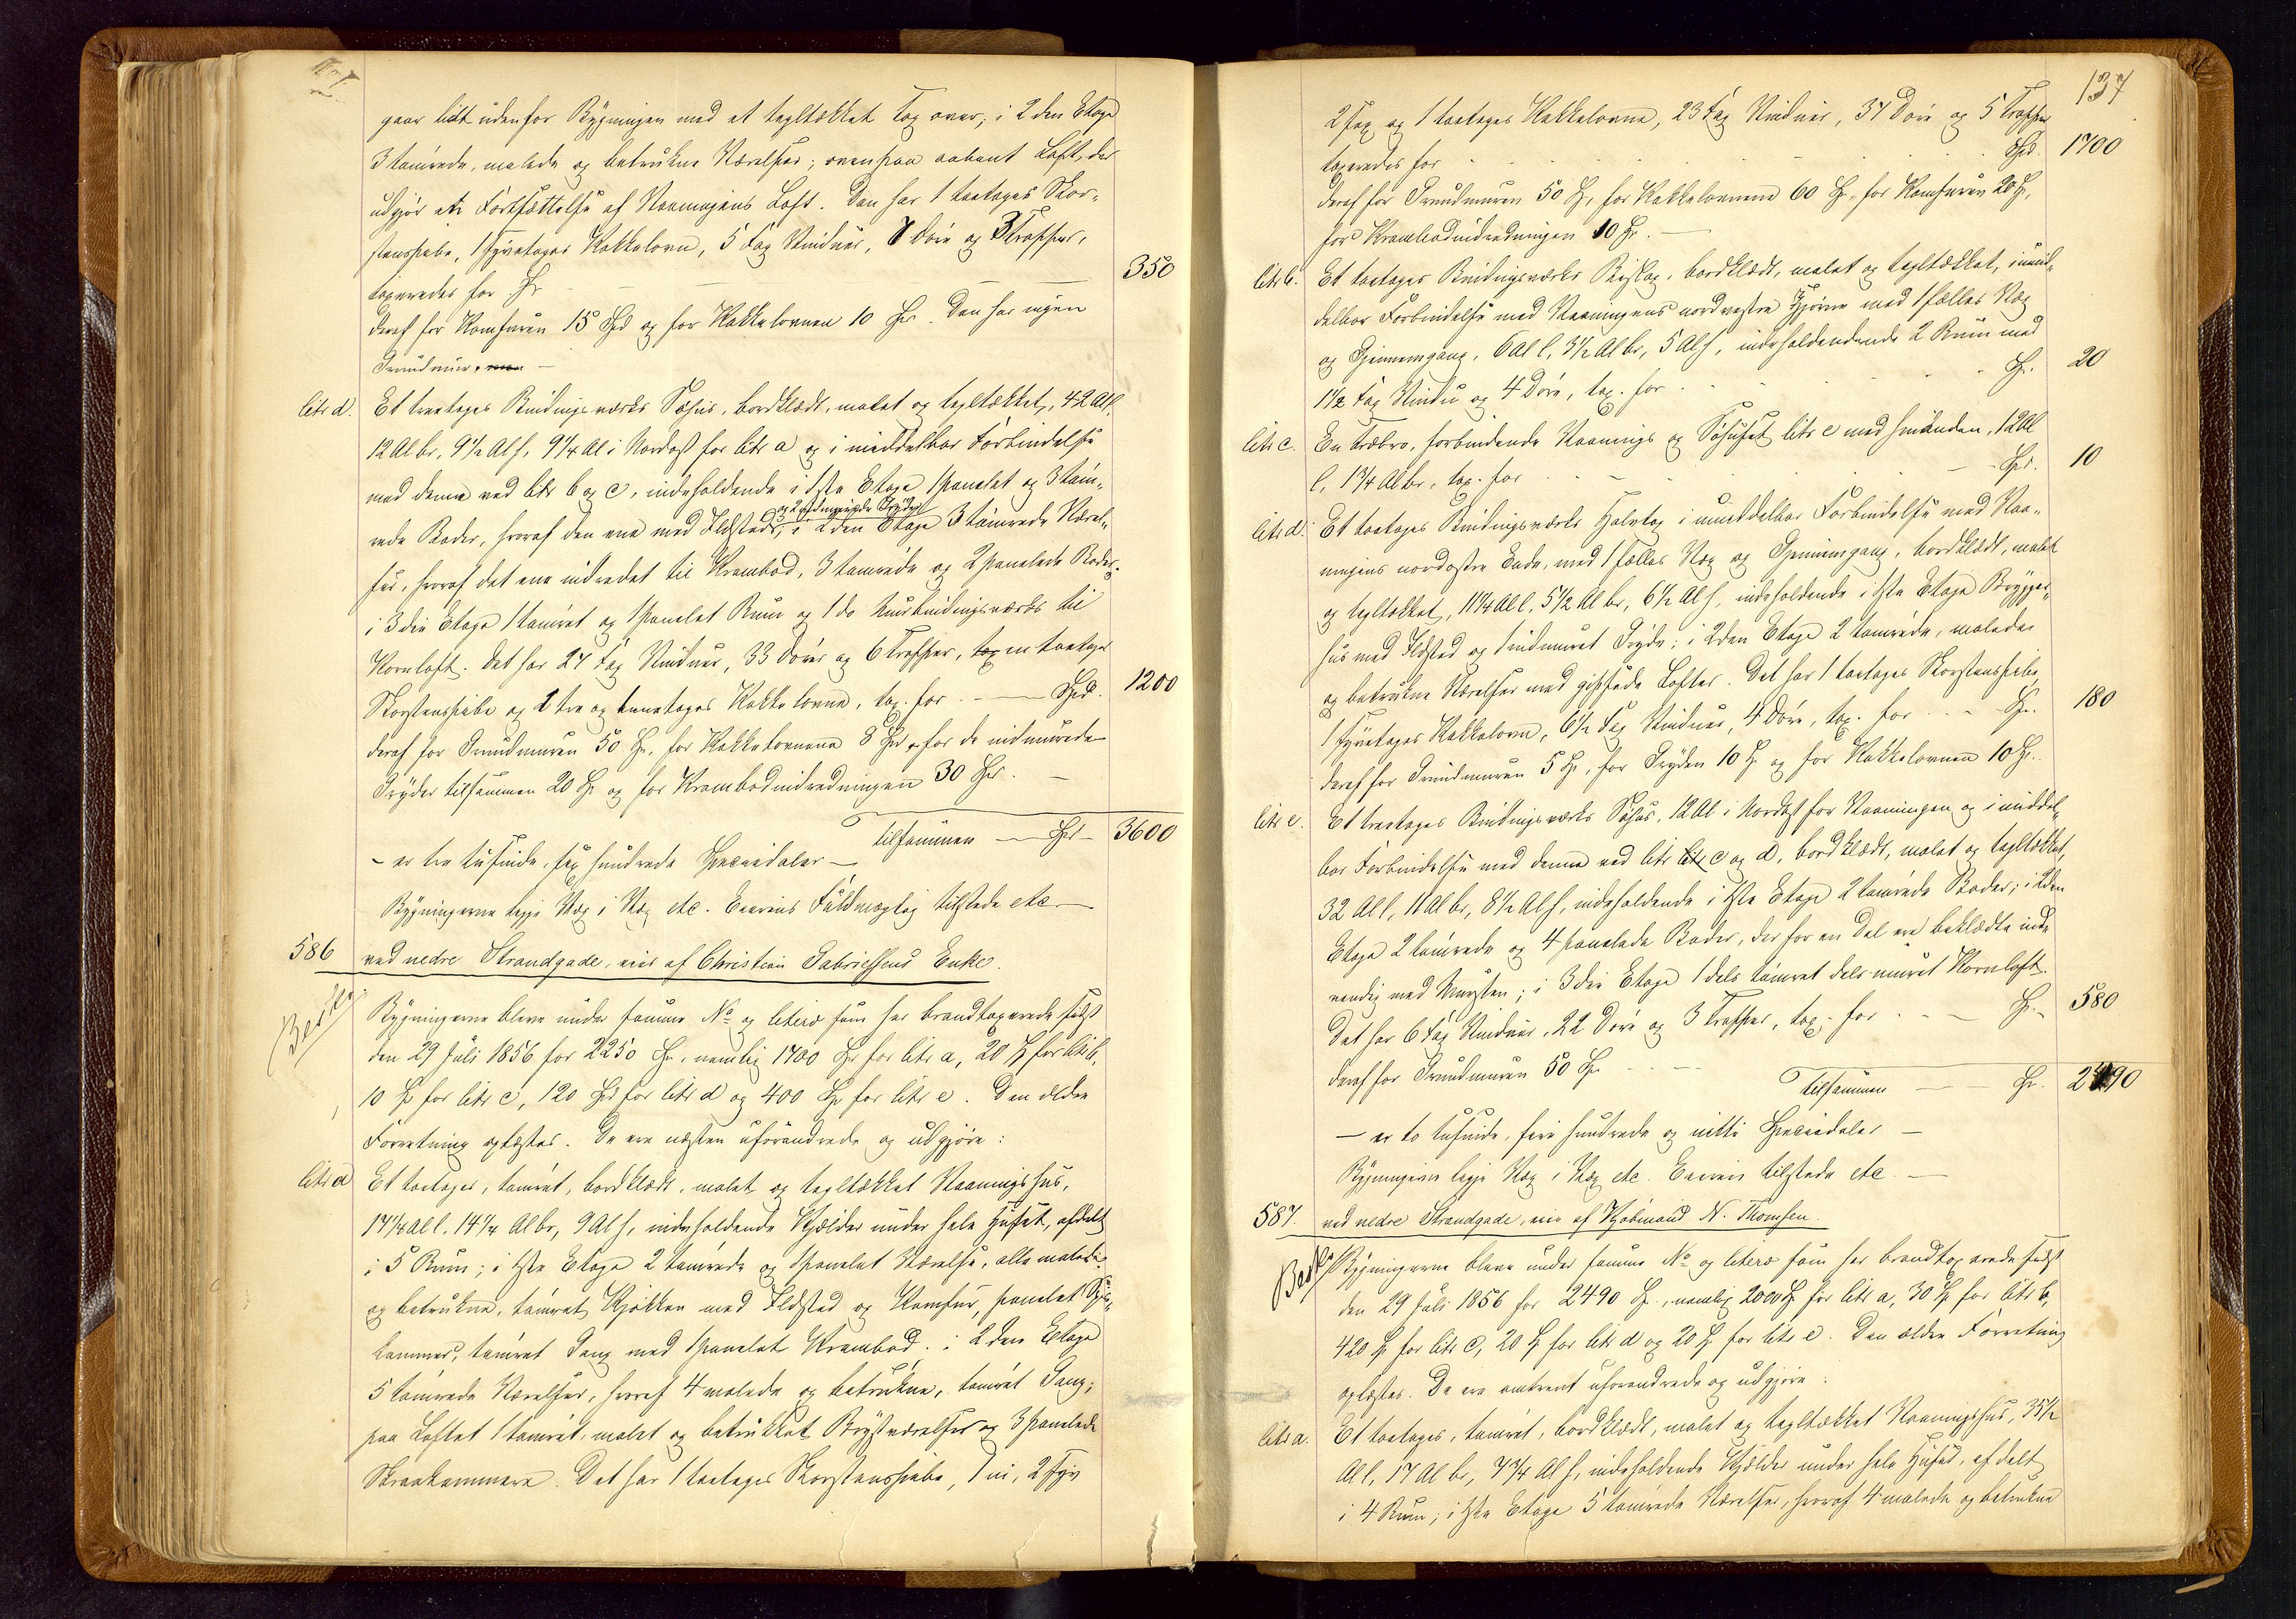 gaar lidt udenfor Bygningen med et tegltækket Tag over; i 2den Etage
3 tømrede, malede og betrukne Værelser; ovenpaa aabent Loft, der
udgjør en Fortsættelse af Vaaningens Loft. Den har 1 toetages Skor-
stenspibe, 1 fyretages Kakkelovn, 5 Fag Vinduer, 7 Døre og 3 Trapper,
taxeredes for Spd. 350
deraf for Komfuren 15 Spd og for Kakkelovnen 10 Spd. Den har ingen
Grundmur.
litr d. Et treetages Bindingsværks Søhus, bordklædt, malet og tegltækket, 42 Al l,
12 Al br, 9½ Al h, 9¼ Al i Nordost for litr a og i middelbar Forbindelse
med denne ved litr b og c, indeholdende i 1ste Etage 1 panelet og 3 tøm-
rede Boder, hvoraf den ene med Ildsted og 2 indmurede Gryder; i 2den Etage 3 tømrede Værel-
ser, hvoraf det ene indredet til Krambod, 3 tømrede og 2 panelede Boder;
i 3die Etage 1 tømret og 1 panelet Rum og 1 do Muurbindingsværks til
Kornloft. Det har 24 Fag Vinduer, 33 Døre og 6 Trapper, en toetages
Skorstenspibe og 1 tre og 1 enetages Kakkelovne, tax. for Spd. 1200
deraf for Grundmuren 50 Sp., for Kakkelovnene 8 Spd, for de indmurede
Gryder tilsammen 20 Sp og for Krambodindredningen 30 Spd.
Tilsammen Spd 3600
- er tre tusinde, sex hundrede Speciedaler -
Bygningerne ligge Væg i Væg etc. Eierens Fuldmægtig tilstede etc.
586 ved nedre Strandgade, eies af Christian Gabrielsens Enke.
Besk.
Bygningerne bleve under samme No og litera som her brandtaxerede sidst
den 29 Juli 1856 for 2250 Sp., nemlig 1700 Sp for litr a, 20 Sp for litr b,
10 Sp for litr c, 120 Spd for litr d og 400 Sp for litr e. Den ældre
Forretning oplæstes. De ere næsten uforandrede og udgjøre:
litr a Et toetages, tømret, bordklædt, malet og tegltækket Vaaningshus,
17¼ Al l. 14¼ Al br, 9 Al h, indeholdende Kjælder under hele Huset, afdelt
i 5 Rum; i 1ste Etage 2 tømrede og 1 panelet Værelse, alle malede
og betrukne, tømret Kjøkken med Ildsted og Komfur, panelet Spis-
kammer, tømret Gang med 1 panelet Krambod. i 2den Etage
5 tømrede Værelser, hvoraf 4 malede og betrukne, tømret Gang;
paa Loftet 1 tømret, malet og betrukket Brystværelse og 3 panelede
Skraakammere. Det har 1 toetages Skorstenspibe, 1 ni, 2 fyr
137
2 sex og 1 toetages Kakkelovne, 23 Fag Vinduer, 34 Døre og 5 Trapper
taxeredes for Spd. 1700
deraf for Grundmuren 50 Sp, for Kakkelovnene 60 Sp, for Komfuren 20 Sp,
for Krambodindredningen 10 Sp.
litr b. Et toetages Bindingsværks Bislag, bordklædt, malet og tegltækket, i umid-
delbar Forbindelse med Vaaningens nordvestre Hjørne med 1 fælles Væg
og Gjennemgang, 6 Al l, 3½ Al br, 5 Al h, indeholdendende 2 Rum med
1½ Fag Vindu og 4 Døre, tax. for Sp. 20
litr c. En Træbro, forbindende Vaanings og Søhuset litr e med hinanden, 12 Al
l, 1¾ Al br, tax. for Spd. 10
litr d. Et toetages Bindingsværks Halvtag i umiddelbar Forbindelse med Vaa-
ningens nordøstre Ende, med 1 fælles Væg og Gjennemgang, bordklædt, malet
og tegltækket, 11¼ Al l, 5½ Al br, 6½ Al h, indeholdende i 1ste Etage Brygger-
hus med Ildsted og indmuret Gryde; i 2den Etage 2 tømrede, malede
og betrukne Værelser med gipsede Lofter. Det har 1 toetages Skorstenspibe,
1 fyretages Kakkelovn, 6½ Fag Vinduer, 4 Døre, tax. for Sp. 180
deraf for Grundmuren 5 Sp, for Gryden 10 Sp og for Kakkelovnen 10 Sp.
litr e. Et treetages Bindingsværks Søhus, 12 Al i Nordost for Vaaningen og i middel-
bar Forbindelse med denne ved litr c og d, bordklædt, malet og tegltækket,
32 Al l, 11 Al br, 8½ Al h, indeholdende i 1ste Etage 2 tømrede Boder; i 2den
Etage 2 tømrede og 4 panelede Boder, der for en Del ere beklædte ind-
vendig med Mursten; i 3die Etage 1 dels tømret dels muret Kornloft.
Det har 6 Fag Vinduer, 22 Døre og 3 Trapper, tax. for Sp. 580
deraf for Grundmuren 50 Sp
Tilsammen Sp. 2490
- er to tusinde, fire hundrede og nitti Speciedaler -
Bygningerne ligge Væg i Væg etc. Eieren tilstede etc.
587. ved nedre Strandgade, eies af Kjøbmand N. Thomsen.
Besk.
Bygningerne bleve under samme No og litera som her brandtaxerede sidst
den 29 Juli 1856 for 2490 Sp., nemlig 2000 Sp for litr a, 30 Sp for litr b,
420 Sp for litr c, 20 Sp for litr d og 20 Sp for litr e. Den ældre Forretning
oplæstes. De ere omtrent uforandrede og udgjøre:
litr a. Et toetages, tømret, bordklædt, malet og tegltækket Vaaningshus, 35½
Al l, 17 Al br, 7¾ Al h, indeholdende Kjælder under hele Huset, afdelt
i 4 Rum; i 1ste Etage 5 tømrede Værelser, hvoraf 4 malede og betrukne